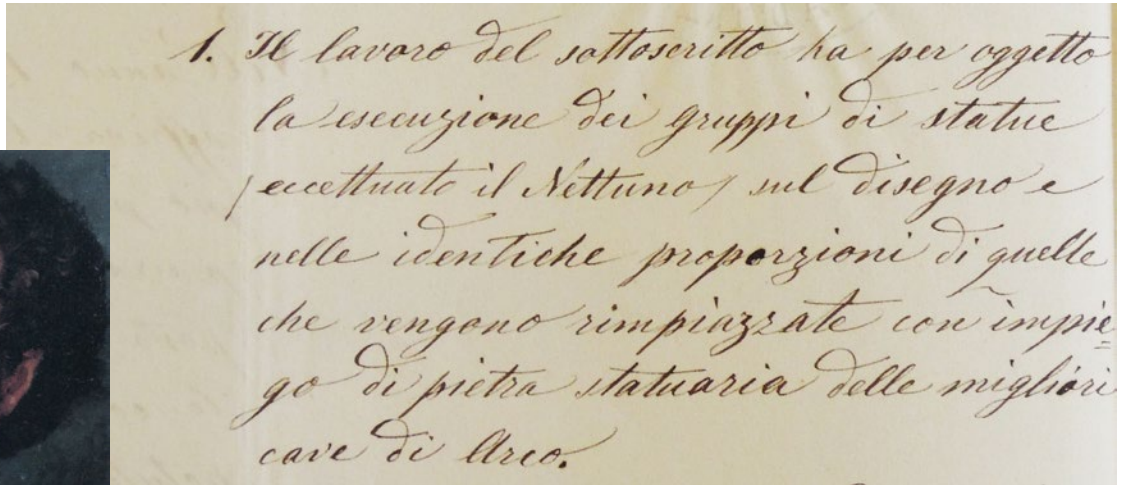 1. Il lavoro del sottoscritto ha per oggetto
la esecuzione dei gruppi di statue
/eccettuato il Nettuno/ sul disegno e
nelle identiche proporzioni di quelle
che vengono rimpiazzate con impie=
go di pietra statuaria delle migliori
cave di Arco.